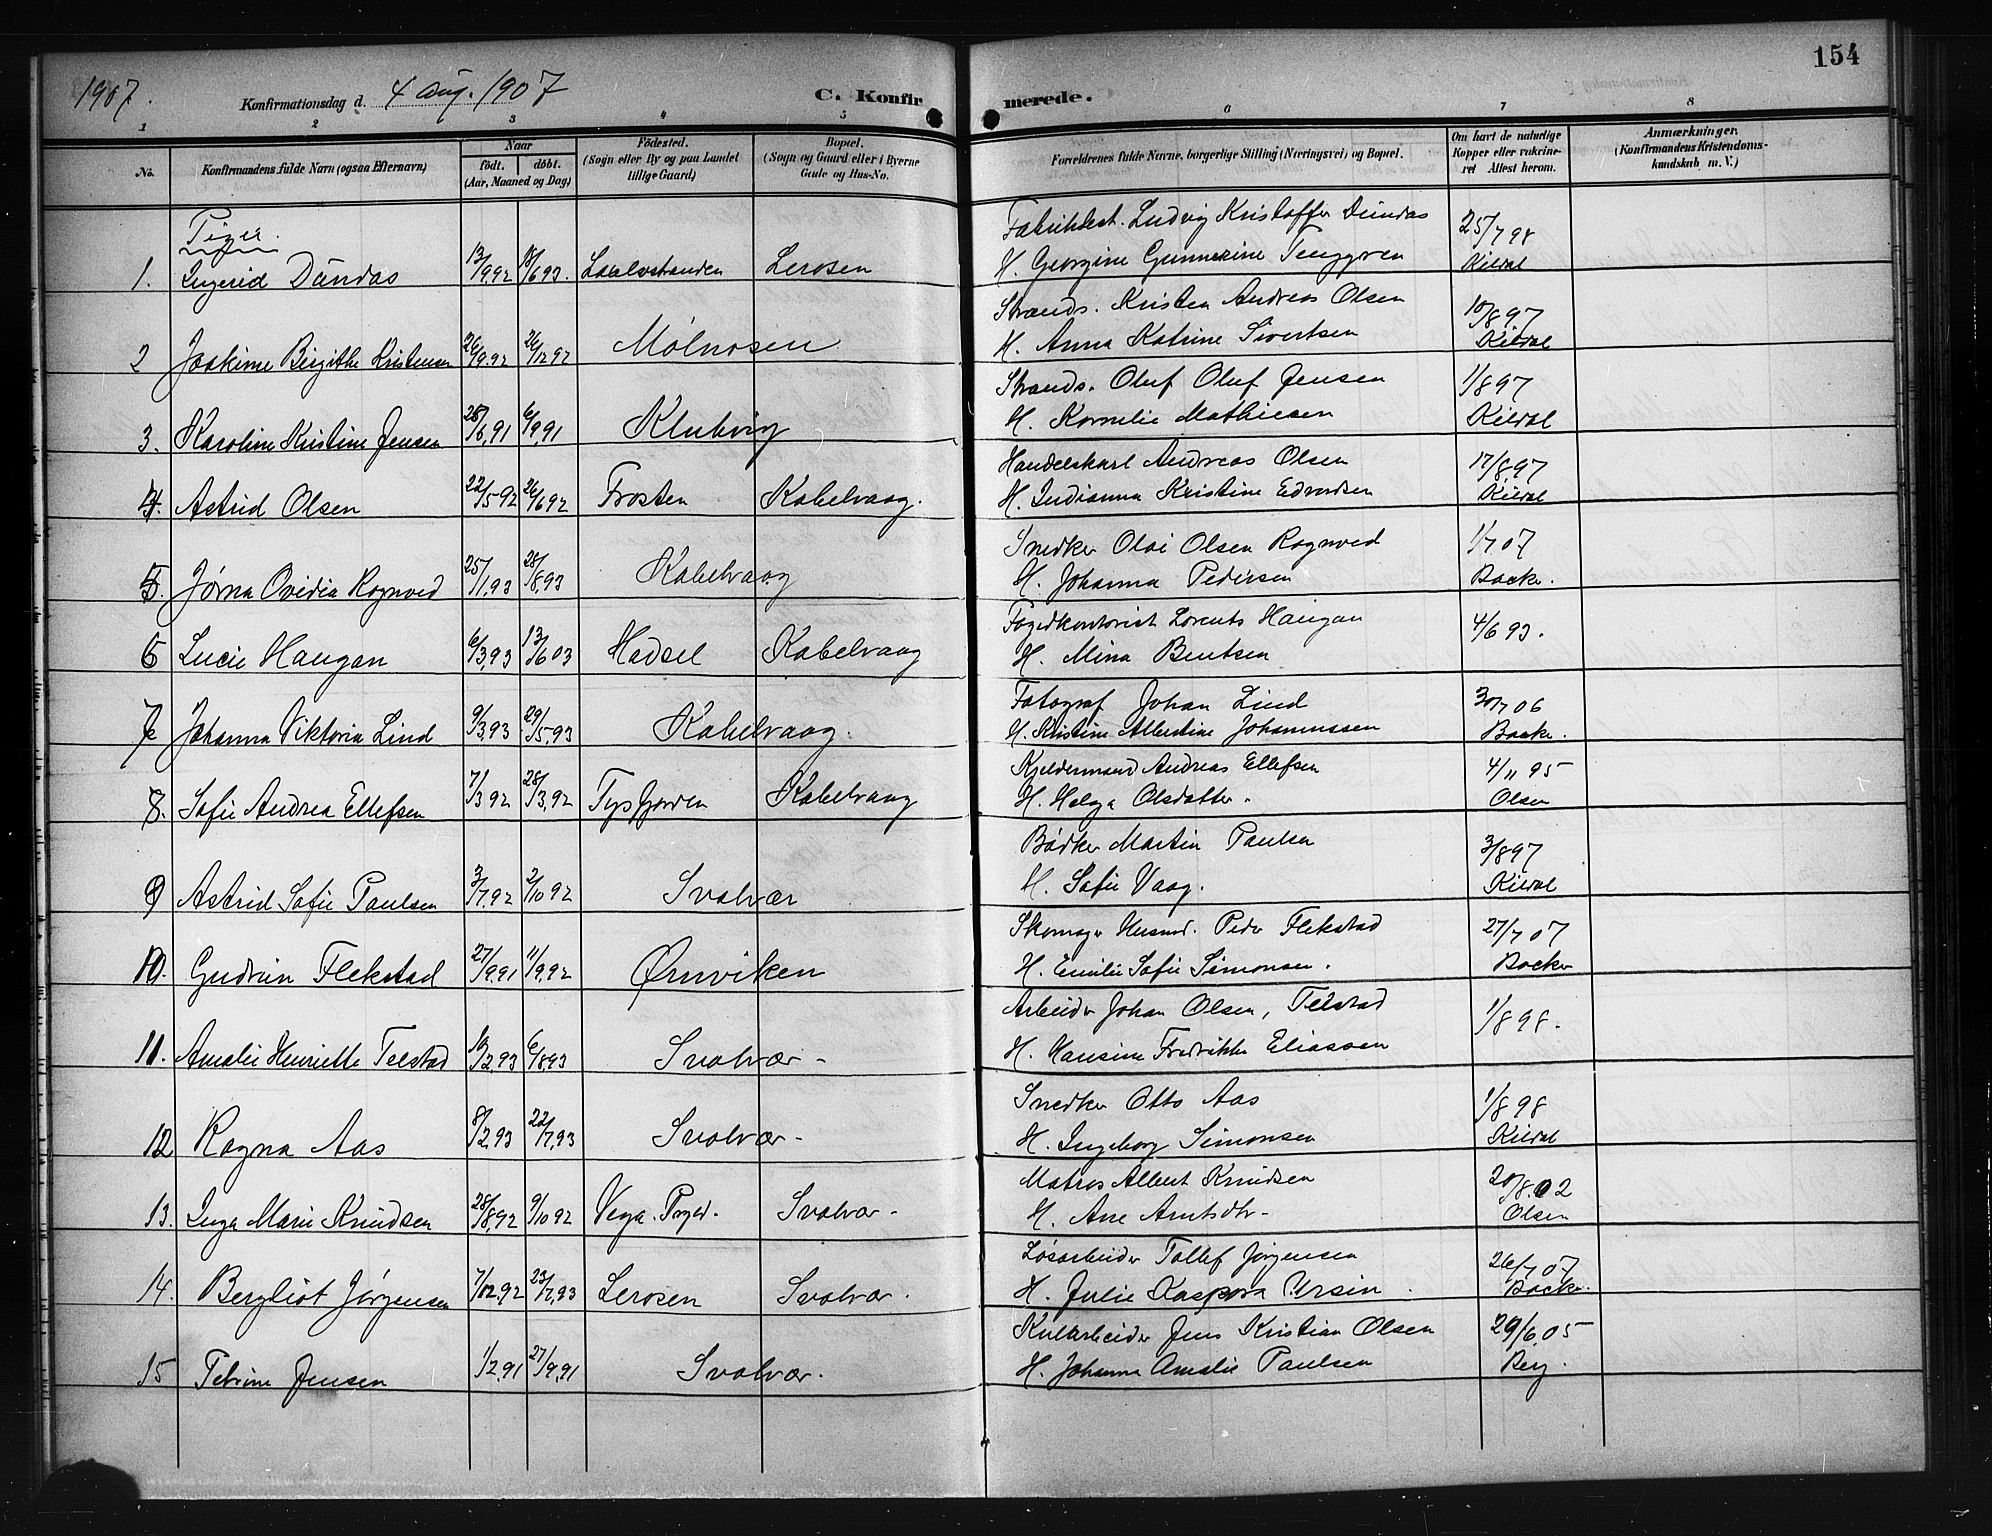 154
1907.
Konfirmationsdag d. 4 Aug. 1907
C. Konfirmerede.
1 2 3 4 5 6 7 8
No.
Konfirmandens fulde Navn (ogsaa Efternavn)
Naar
født. døbt.
(Aar, Maaned og Dag)
Fødested.
(Sogn eller By og paa Landet tillige Gaard)
Bopæl.
(Sogn og Gaard eller i Byerne Gade og Hus-No.
Forældrenes fulde Navne, borgerlige Stilling (Næringsvei) og Bopæl.
Om havt de naturlige Kopper eller vakcineret Attest herom.
Anmærkninger.
(Konfirmandens Kristendomskundskab m. V.)
Piger.
Fabrikbest. Ludvig Kristoffer Dundas 25/7 98
1. Ingerid Dundas 13/9.92 18/6 93. Lerosen H. Georgine Gunnerine Tenggren Kildal
Strands. Kristen Andreas Olsen 10/8 97
2 Joakime Birgithe Kristensen 26/9.92 26/12 92 Molnosen H. Anna Katrine Sivertsen Kildal
Strands. Oluf Oluf Jensen 1/8 97
3. Karoline Kristine Jensen 28/6,91 6/9,91 H. Kornelie Mathiesen Kildal
Handelskarl Andreas Olsen 17/8.97
4. Astrid Olsen 22/5 92 26/6 92 Frosten Kabelvaag. H. Indianna Kristine Edvardsen Kildal
Snedker Olai Olsen Rognved 1/7 07
5. Jørna Ovidia Rognved 25/1.93 28/8,93 Kabelvaag H. Johanna Pedersen Backer.
Fogedkontorist Lorents Haugan 4/6 93.
6 Lucie Haugan 6/3,93 13/6 03 Hadsel Kabelvaag H. Mina Bentsen
Fotograf Johan Lind 30/7 06
7. Johanna Viktoria Lind 9/3,93 29/5,93 Kabelvaag. H. Kristine Albertine Johannessen Backer.
Kjeldermand Andreas Ellefsen 4/11 95
8. Sofie Andrea Ellefsen 7/3 92 28/3,92 Tysfjorden Kabelvaag H. Helga Olsdatter. Olsen
Bødker Martin Paulsen 3/8 97
9 Astrid Sofie Paulsen 3/7,92 2/10 92 Svolvær H. Sofie Vaag. Kildal
Skomager Husmd. Peder Flekstad 27/7 07
10. Gudrun Flekstad 27/9.91 11/9,92 Ørnviken H. Emilie Sofie Simonsen. Backer
Arbeider Johan Olsen, Telstad 1/8 98.
11. Amalie Henriette Telstad 10/2,93 6/8,93 Svolvær - H. Hansine Fredrikke Eliassen
Snedker Otto Aas 1/8 98
12 Ragna Aas 8/2,93 22/7,93 Svolvær - H. Ingeborg Simonsen Kildal
Matros Albert Knudsen 20/8.02
13. Inga Marie Knudsen 28/8,92 9/10 92 Vega. Prgd. Svolvær - H. Ane Arntsdtr - Olsen
Løsarbeider Tollef Jørgensen 26/7 07
14. Bergliot Jørgensen 7/12.92 23/7,93 Lerosen Svolvær. H. Julie Kaspara Ursin. Backer.
Kularbeider Jens Kristian Olsen 29/6 05
15 Petrine Jensen 1/2,91 27/9,91 Svolvær. H. Johanna Amalie Paulsen Berg.